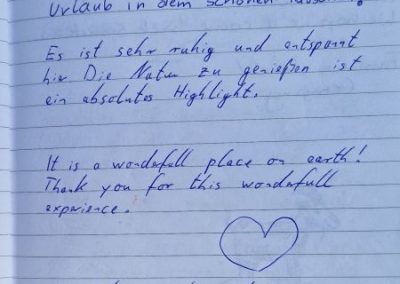 Urlaub in dem schönen
Es ist sehr ruhig und entspannt
hier Die Natur zu genießen ist
ein absolutes Highlight.
It is a wonderfull place on earth!
Thank you for this wonderfull
experience.